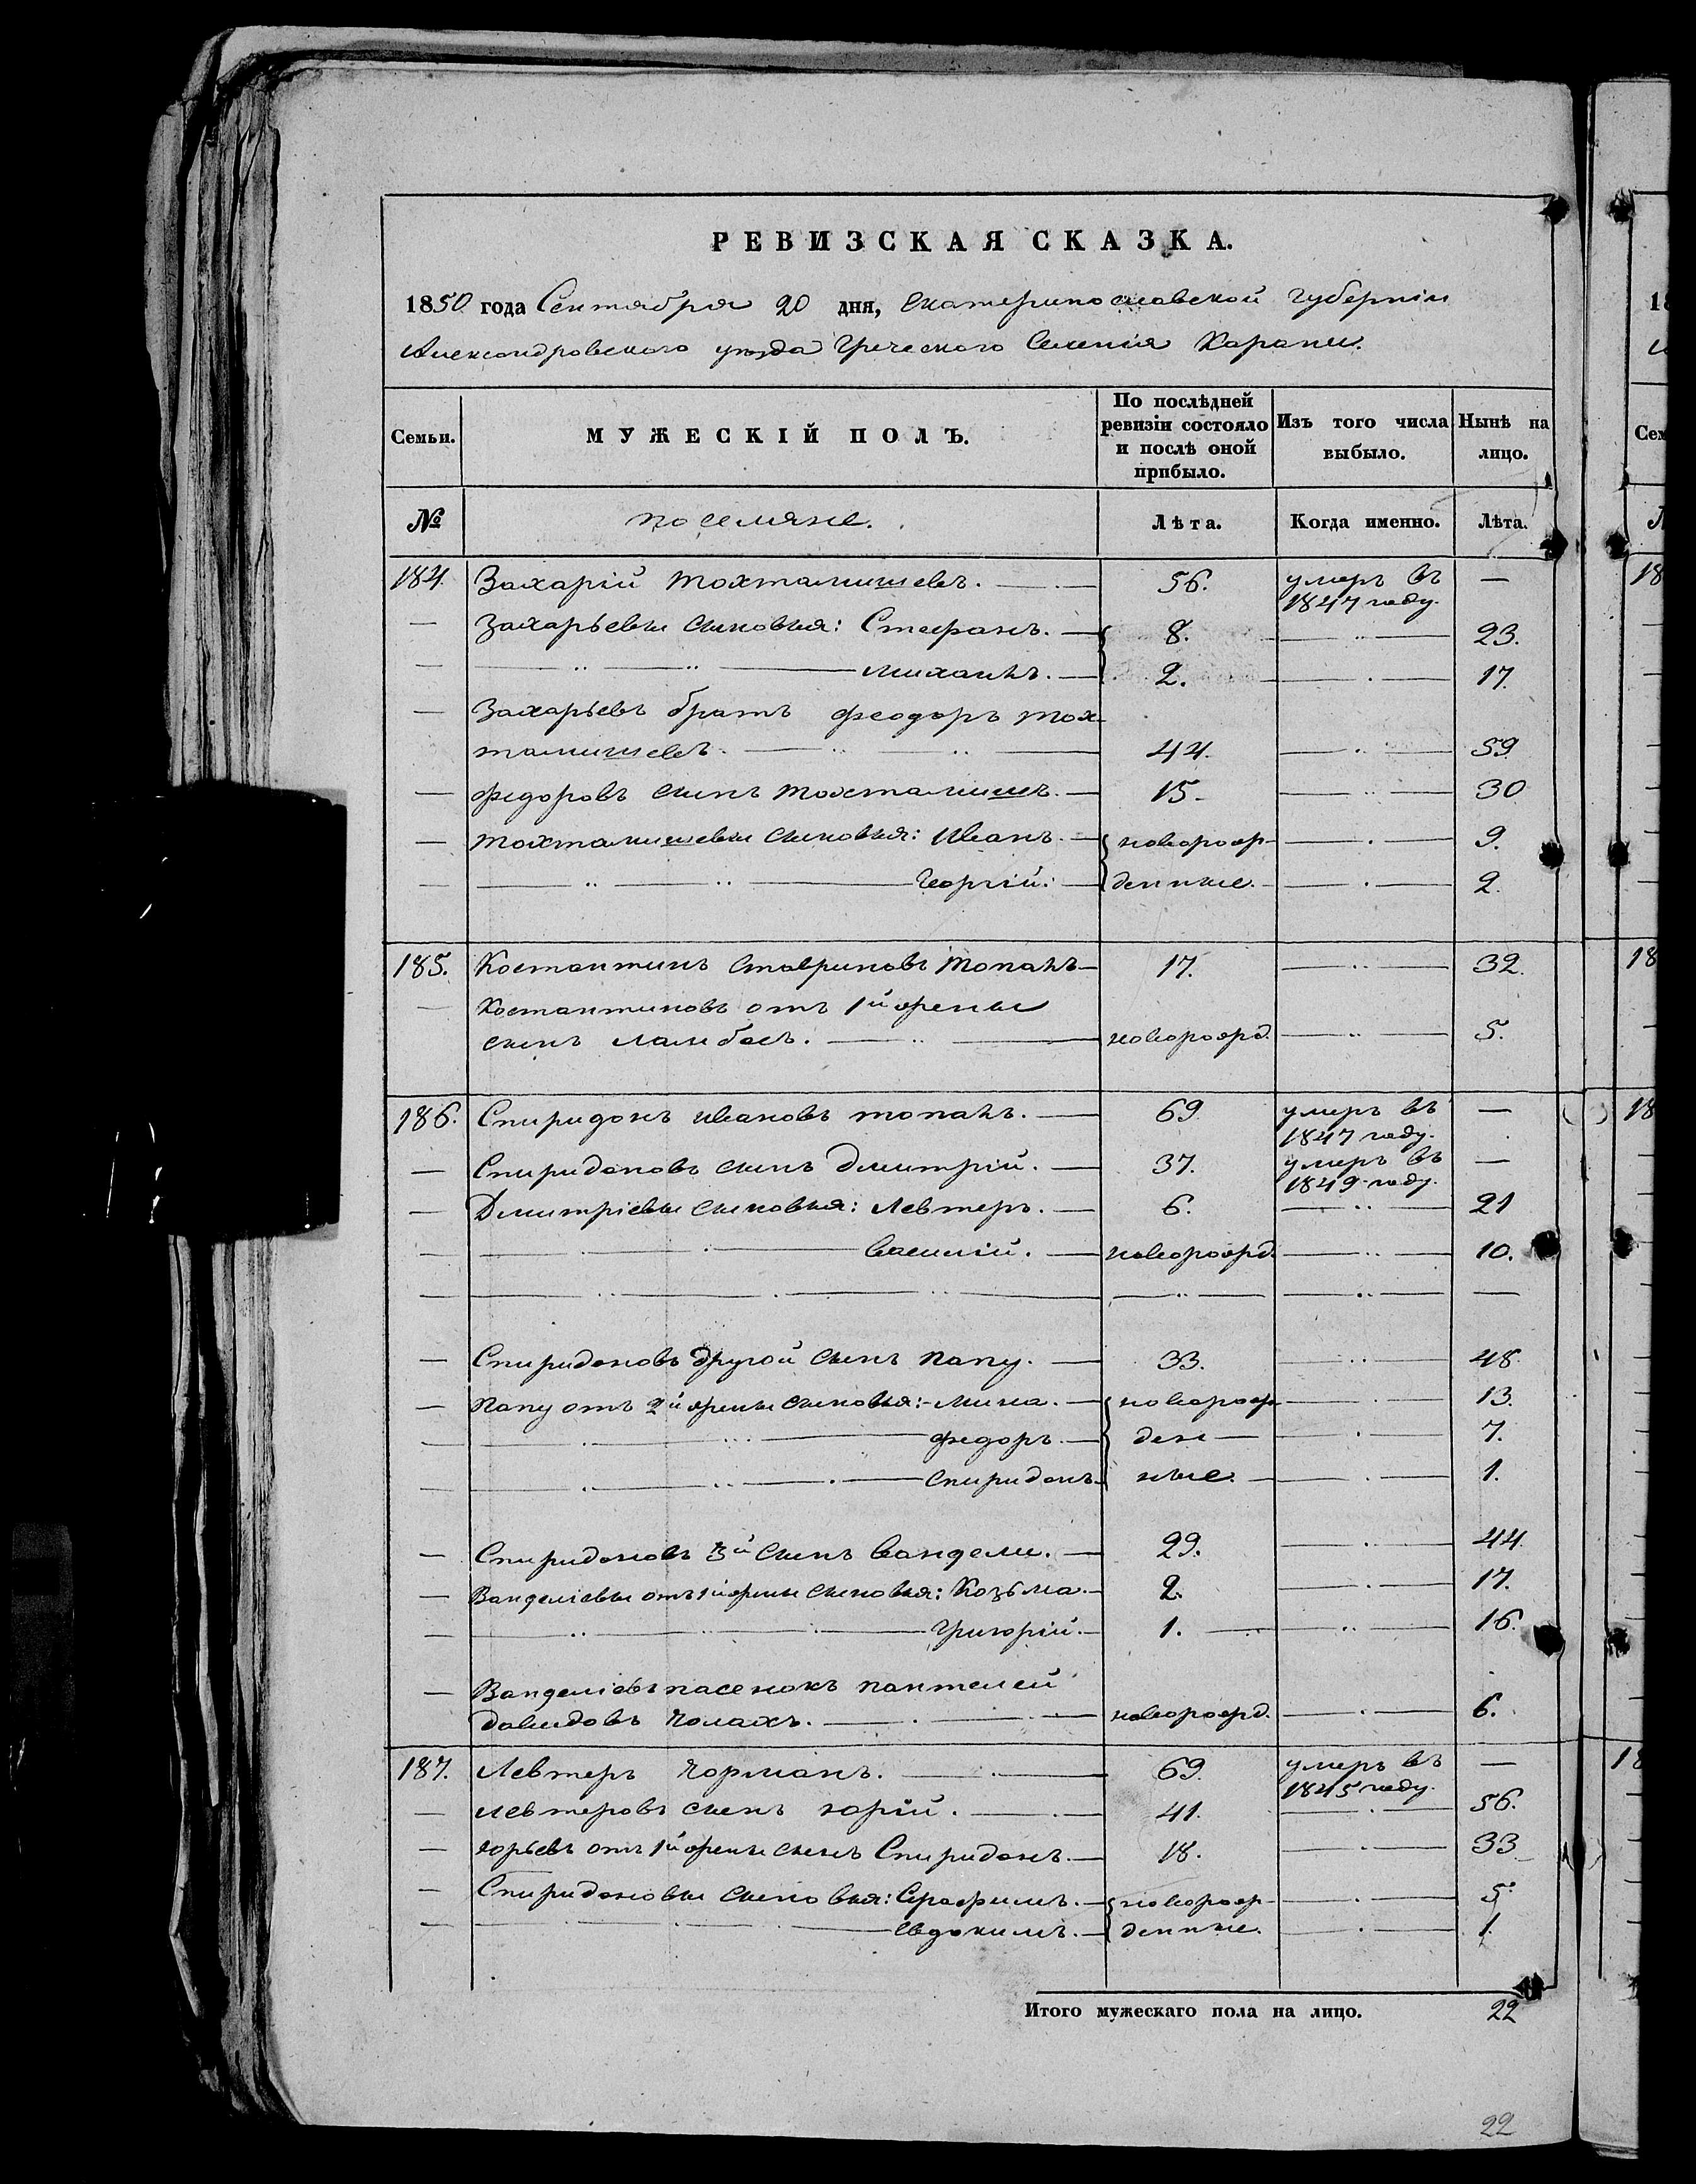 РЕВИЗСКАЯ СКАЗКА.
1850 года Сентября 20 дня, Екатеринославской Губернiи
Александровского уезда Греческого Селенiя Карани.
Семьи. МУЖЕСКIЙ ПОЛЪ. По послѣдней ревизiи состояло и послѣ оной прибыло. Изъ того числа выбыло. Нынѣ на лицо.
№ поселяне. Лѣта. Когда именно. Лѣта.
184. Захарiй Тохтамишевъ. 56. умеръ въ 1847 году. —
— Захарьевы сыновья: Стефанъ. 8. — 23.
— Михаилъ. 2. — 17.
— Захарьевъ братъ Феодоръ Тох-
тамишевъ. 44. — 59
— Федоровъ сынъ Тохтамишъ. 15 — 30
— Тохтамишевы сыновья: Иванъ. новорож- — 9.
— Георгiй. денные. — 2.
185. Костантинъ Ставриновъ Топалъ 17. — 32.
— Костантиновъ отъ 1й жены
сынъ Ламбосъ. новорожд. — 5.
186. Спиридонъ Ивановъ Топалъ. 69 умеръ въ 1847 году. —
— Спиридоновъ сынъ Дмитрiй. 37. умеръ въ 1849 году. —
— Дмитрiевы сыновья: Левтеръ. 6. — 21
— Василiй. новорожд. — 10.
— Спиридоновъ другой сынъ Папу. 33. — 48
— Папу отъ 2й жены сыновья: Мина. новорож- — 13.
— Федоръ. ден — 7.
— Спиридонъ ные. — 1.
— Спиридоновъ 3й сынъ Вангели. 29. — 44
— Вангелiевы отъ 1й жены сыновья: Козьма. 2. — 17.
— Григорiй. 1. — 16.
— Вангелiевъ пасенокъ Пантелей
Давидовъ Чолахъ. новорожд. — 6.
187. Левтеръ Чорманъ. 69. умеръ въ 1845 году. —
— Левтеровъ сынъ Юрiй. 41. — 56.
— Юрьевъ отъ 1й жены сынъ Спиридонъ. 18. — 33
— Спиридоновы сыновья: Серафимъ. новорож- — 5
— Евдокимъ. денные. — 1.
Итого мужескаго пола на лицо. 22
22